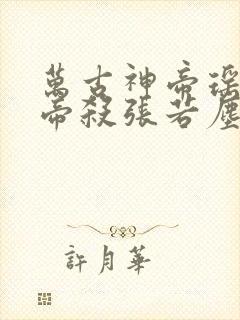 萬古神帝瑶
帝殺張若塵
許月華